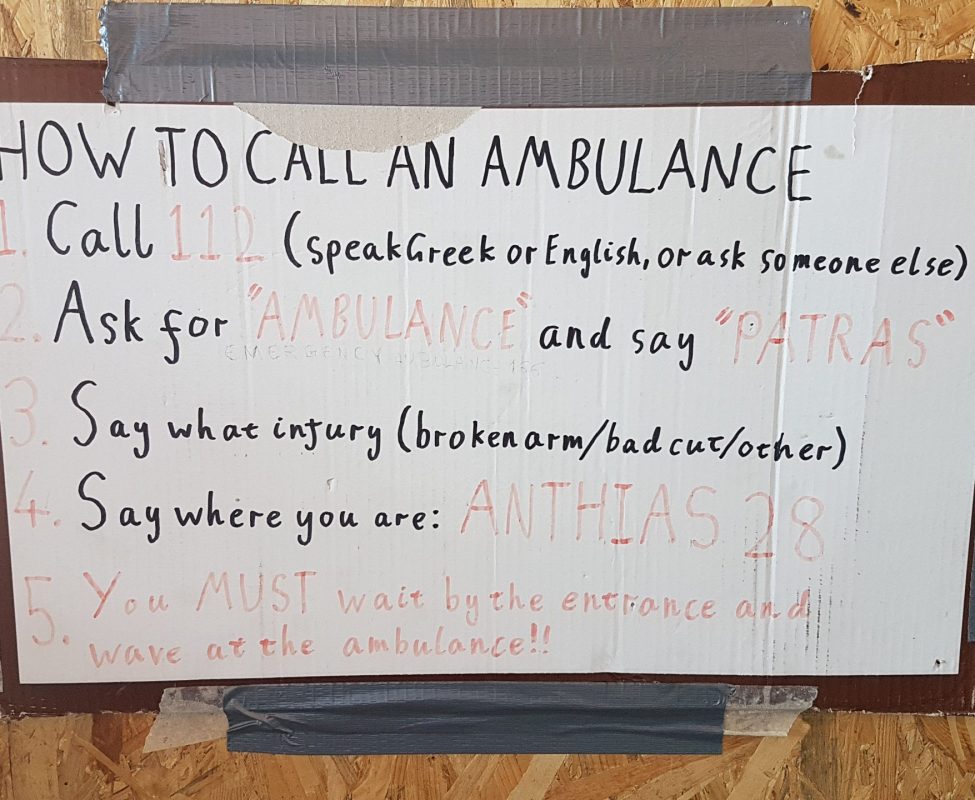 HOW TO CALL AN AMBULANCE
1. Call 112 (speak Greek or English, or ask someone else)
2. Ask for "AMBULANCE" and say "PATRAS"
EMERGENCY 166
3. Say what injury (broken arm/bad cut/other)
4. Say where you are: ANTHIAS 28
5. You MUST wait by the entrance and
wave at the ambulance!!